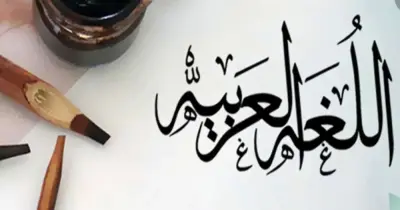 اللُغة العَربيّة